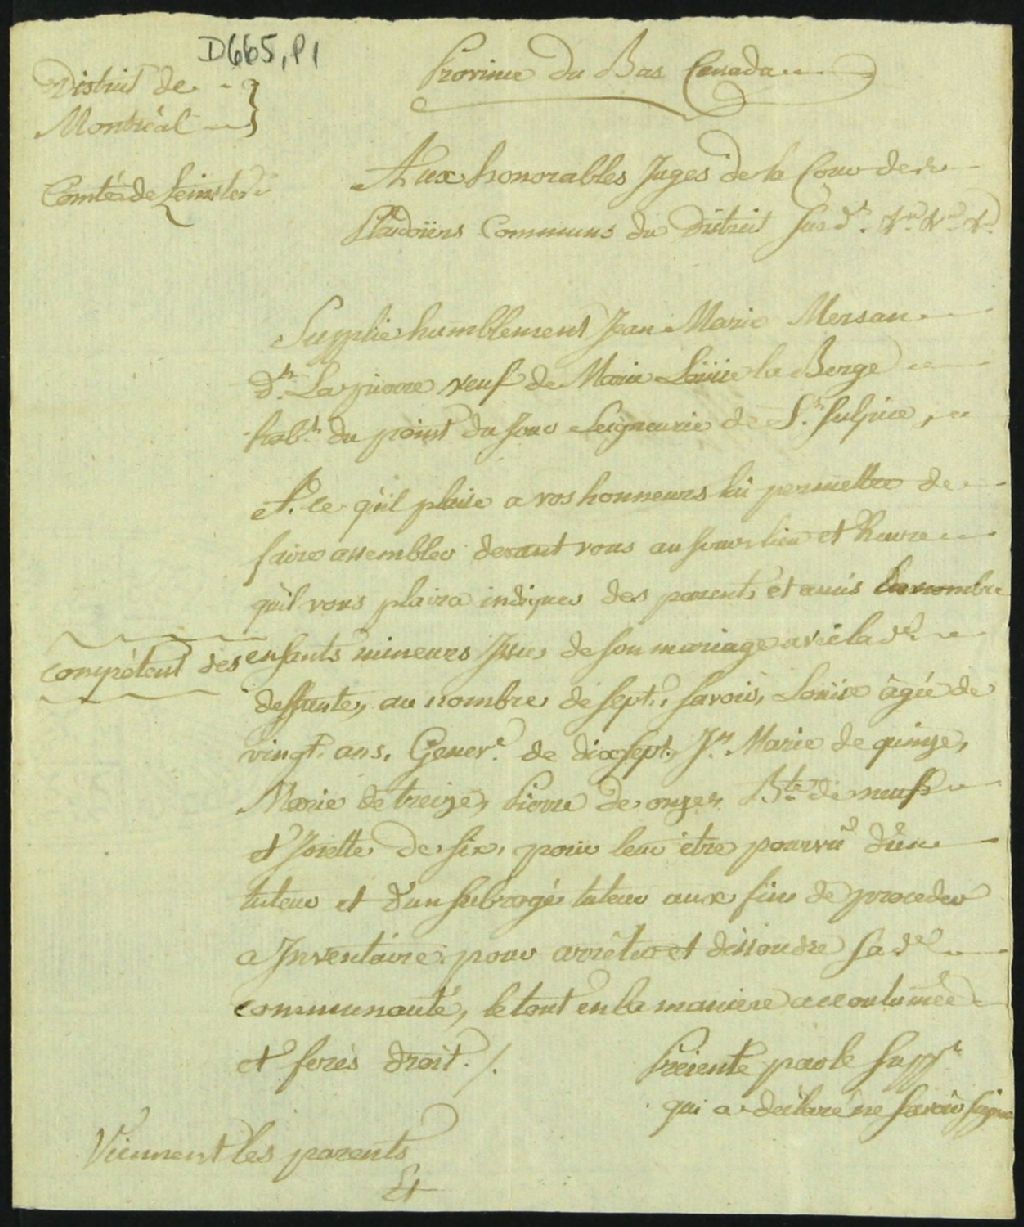 D665, P1
Province du Bas Canada
District de
Montréal
Comté de Leinster
Aux honorables Juges de la Cour de
Plaidoiers Communs du District Susdt. &ra. &ra. &ra.
Supplie humblement Jean Marie Mersan
dt. Lapierre veuf de Marie Loüise la Berge
habt. du point du Jour Seigneurie de St. Sulpice,
A. ce qu'il plaise a vos honneurs lui permettre de
faire assembler devant vous au jour lieu et heure
qu'il vous plaira indiquer des parents et amis en nombre
competent des enfants mineurs Issus de son mariage avec lade.
deffunte, au nombre de sept, savoir, Loüise âgée de
vingt ans, Genev.e de dixsept, Jn. Marie de quinze,
Marie de treize, Pierre de onze, Bte. de neuf
et Josette de six, pour leur être pourvû d'un
tuteur et d'un subrogé tuteur aux fins de proceder
a Inventaire pour arrêter et dissoudre sade.
communauté, le tout en la maniere accoutumée
et ferés droit./.
Présenté par le Suppt.
qui a déclaré ne savoir signer
Viennent les parents